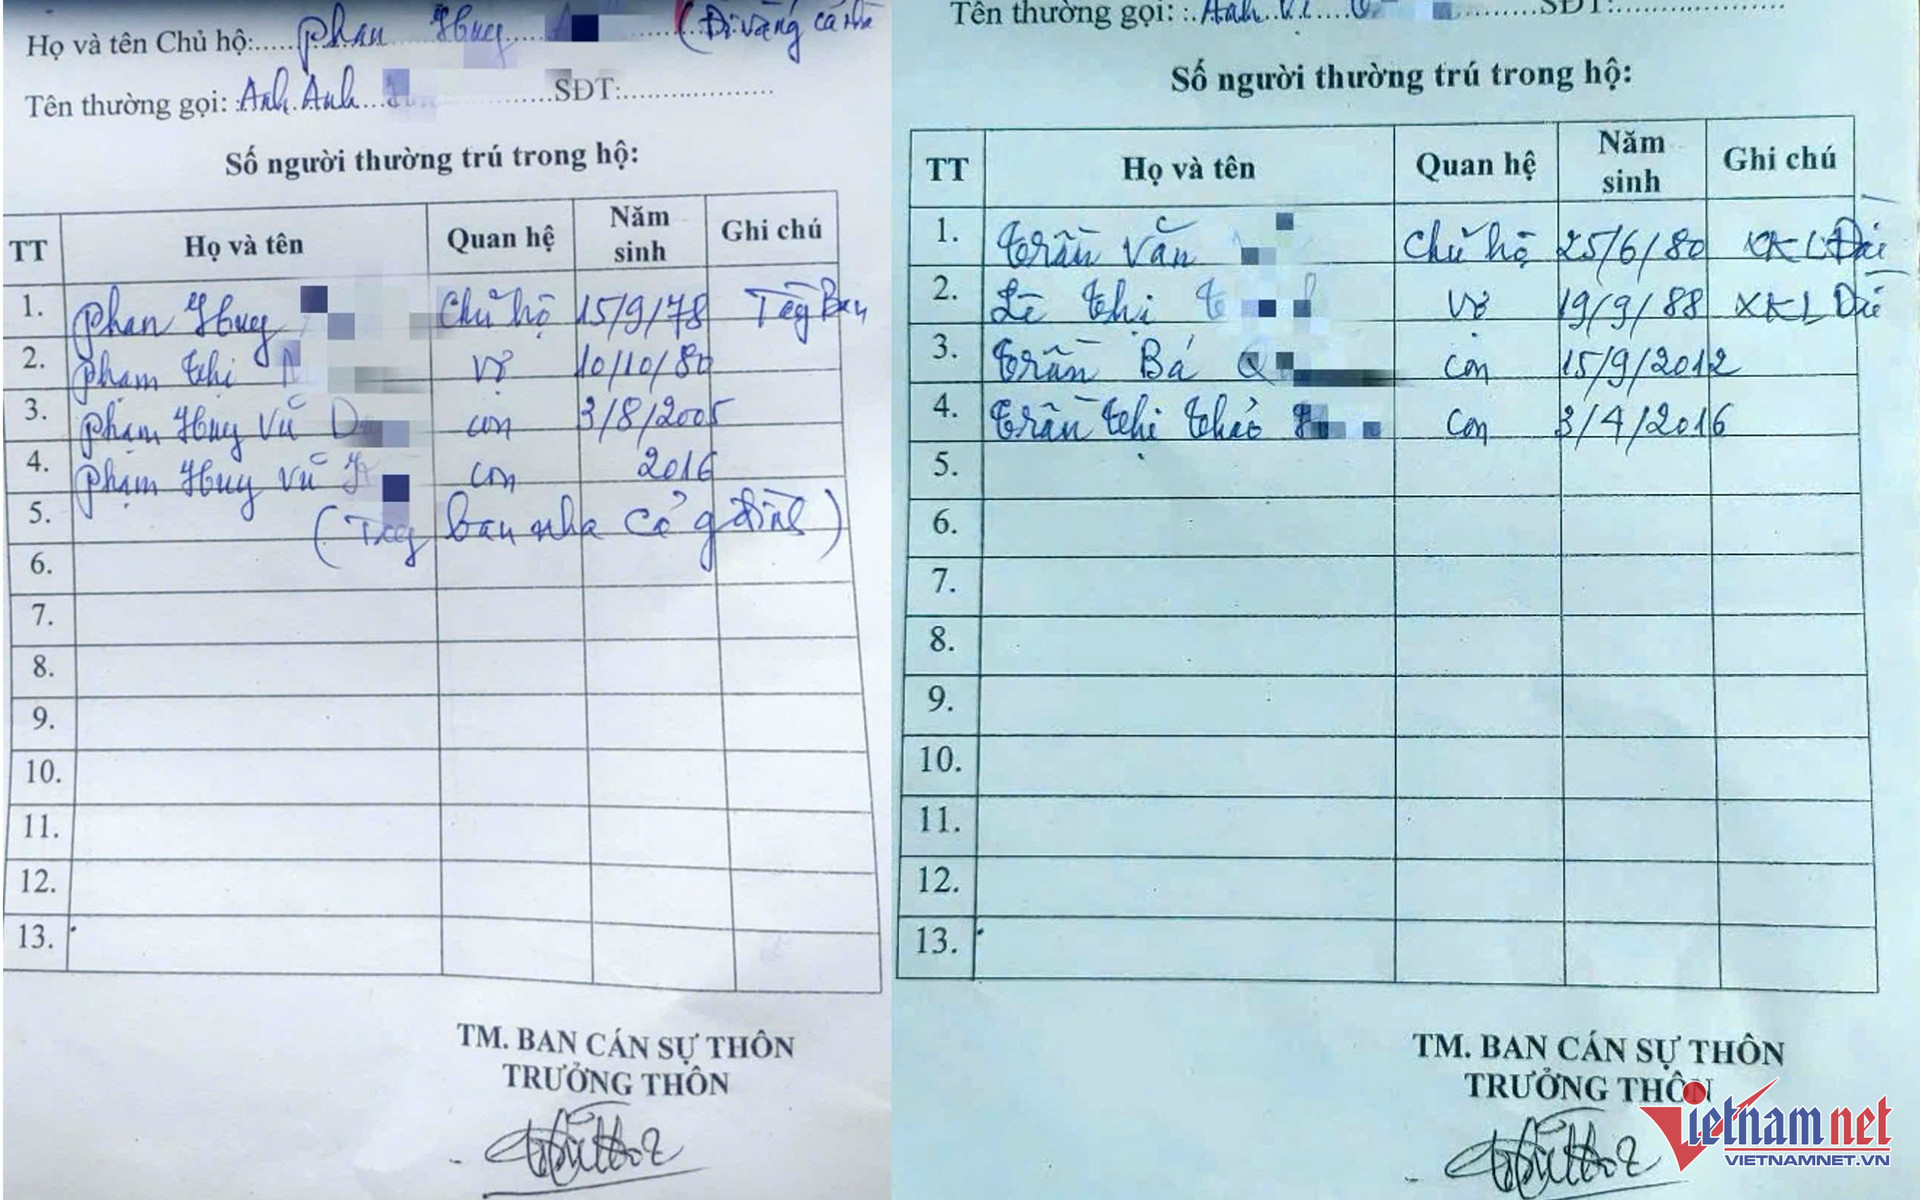 Họ và tên Chủ hộ: Phan Huy (Đi vắng cả nhà
Tên thường gọi: Anh Anh SĐT:
Số người thường trú trong hộ:
TT Họ và tên Quan hệ Năm sinh Ghi chú
1. Phan Huy Chủ hộ 15/9/78
2. Phạm thị Vợ 10/10/80
3. Phạm Huy Vũ con 3/8/2005
4. Phạm Huy Vũ con 2016
5. nha cả đình)
6.
7.
8.
9.
10.
11.
12.
13.
TM. BAN CÁN SỰ THÔN
TRƯỞNG THÔN
Tên thường gọi: Anh SĐT:
Số người thường trú trong hộ:
TT Họ và tên Quan hệ Năm sinh Ghi chú
1. Trần Văn Chủ hộ 25/6/80 XKLĐ
2. Lê thị Vợ 19/9/88 XKLĐ
3. Trần Bá Con 15/9/2012
4. Trần thị thảo Con 3/4/2016
5.
6.
7.
8.
9.
10.
11.
12.
13.
TM. BAN CÁN SỰ THÔN
TRƯỞNG THÔN
Vietnamnet
VIETNAMNET.VN